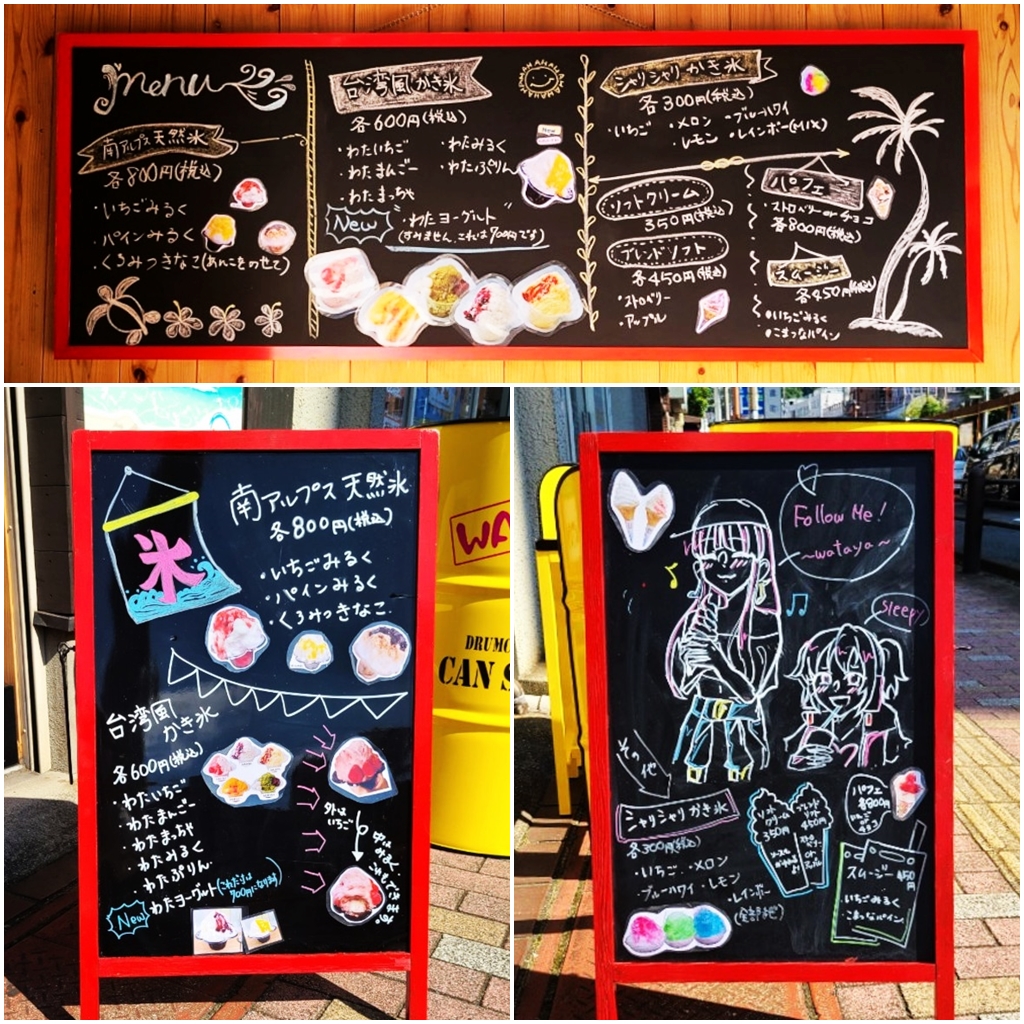 menu
南アルプス天然氷
各800円(税込)
・いちごみるく
・パインみるく
・くろみつきなこ(あんこをのせて)
台湾風かき氷
各600円(税込)
・わたいちご
・わたみるく
・わたまんごー
・わたぷりん
・わたまっちゃ
New
New
・わたヨーグルト
(すみません、これは700円です)
シャリシャリかき氷
各300円(税込)
・いちご
・メロン
・ブルーハワイ
・レモン
・レインボー(MIX)
ソフトクリーム
350円(税込)
ブレンドソフト
各450円(税込)
・ストロベリー
・アップル
パフェ
・ストロベリー or チョコ
各800円(税込)
スムージー
各450円(税込)
・いちごみるく
・こまつなパイン
氷
南アルプス天然氷
各800円(税込)
・いちごみるく
・パインみるく
・くろみつきなこ
台湾風
かき氷
各600円(税込)
・わたいちご
・わたまんごー
・わたまっちゃ
・わたみるく
・わたぷりん
New
わたヨーグルト(これだけは
700円になります)
外は
いちご
WA
DRUMC
CAN S
Follow Me!
~wataya~
Sleepy
その他
シャリシャリかき氷
各300円(税込)
・いちご ・メロン
・ブルーハワイ ・レモン
・レインボー
ソフト
クリーム
350円
ブレンド
ソフト
450円
パフェ
各800円
いちご
or
チョコ
スムージー 450円
いちごみるく
こまつなパイン